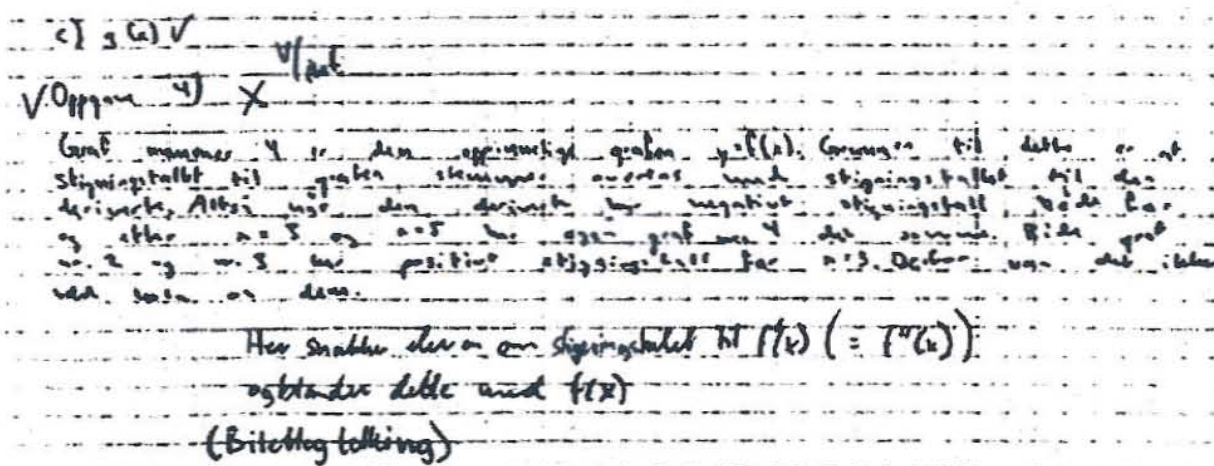 c) g(x) √
√ Oppgave 4) X
Graf nummer 4 er den opprinnelige grafen y=f(x). Grunnen til dette er at
stigningstallet til grafen stemmer overens med stigningstallet til den
deriverte. Altså når den deriverte har negativt stigningstall, både før
og etter x = 3 og x=5 har også graf nr. 4 det samme. Både graf
nr. 2 og nr. 3 har positivt stigningstall før x=3. Derfor kan det ikke
være noen av dem.
Her snakker eleven om stigningstalet til f'(x) (= f''(x))
og blander dette med f(x)